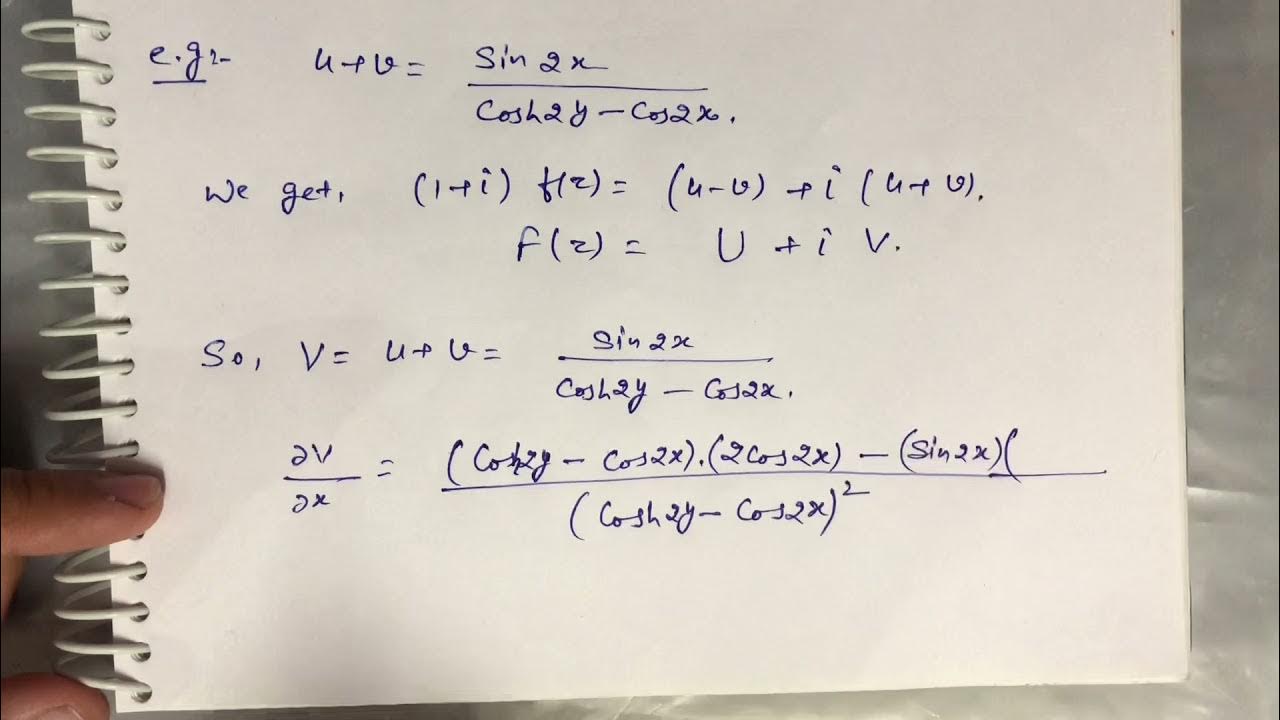 e.g:- u+v = Sin 2x / Cosh2y - Cos2x.
We get, (1+i) f(z) = (u-v) + i (u+v).
F(z) = U + i V.
So, V = u+v = Sin 2x / Cosh2y - Cos2x.
∂V/∂x = (Cosh2y - Cos2x).(2Cos2x) - (Sin2x)( / (Cosh2y - Cos2x)²